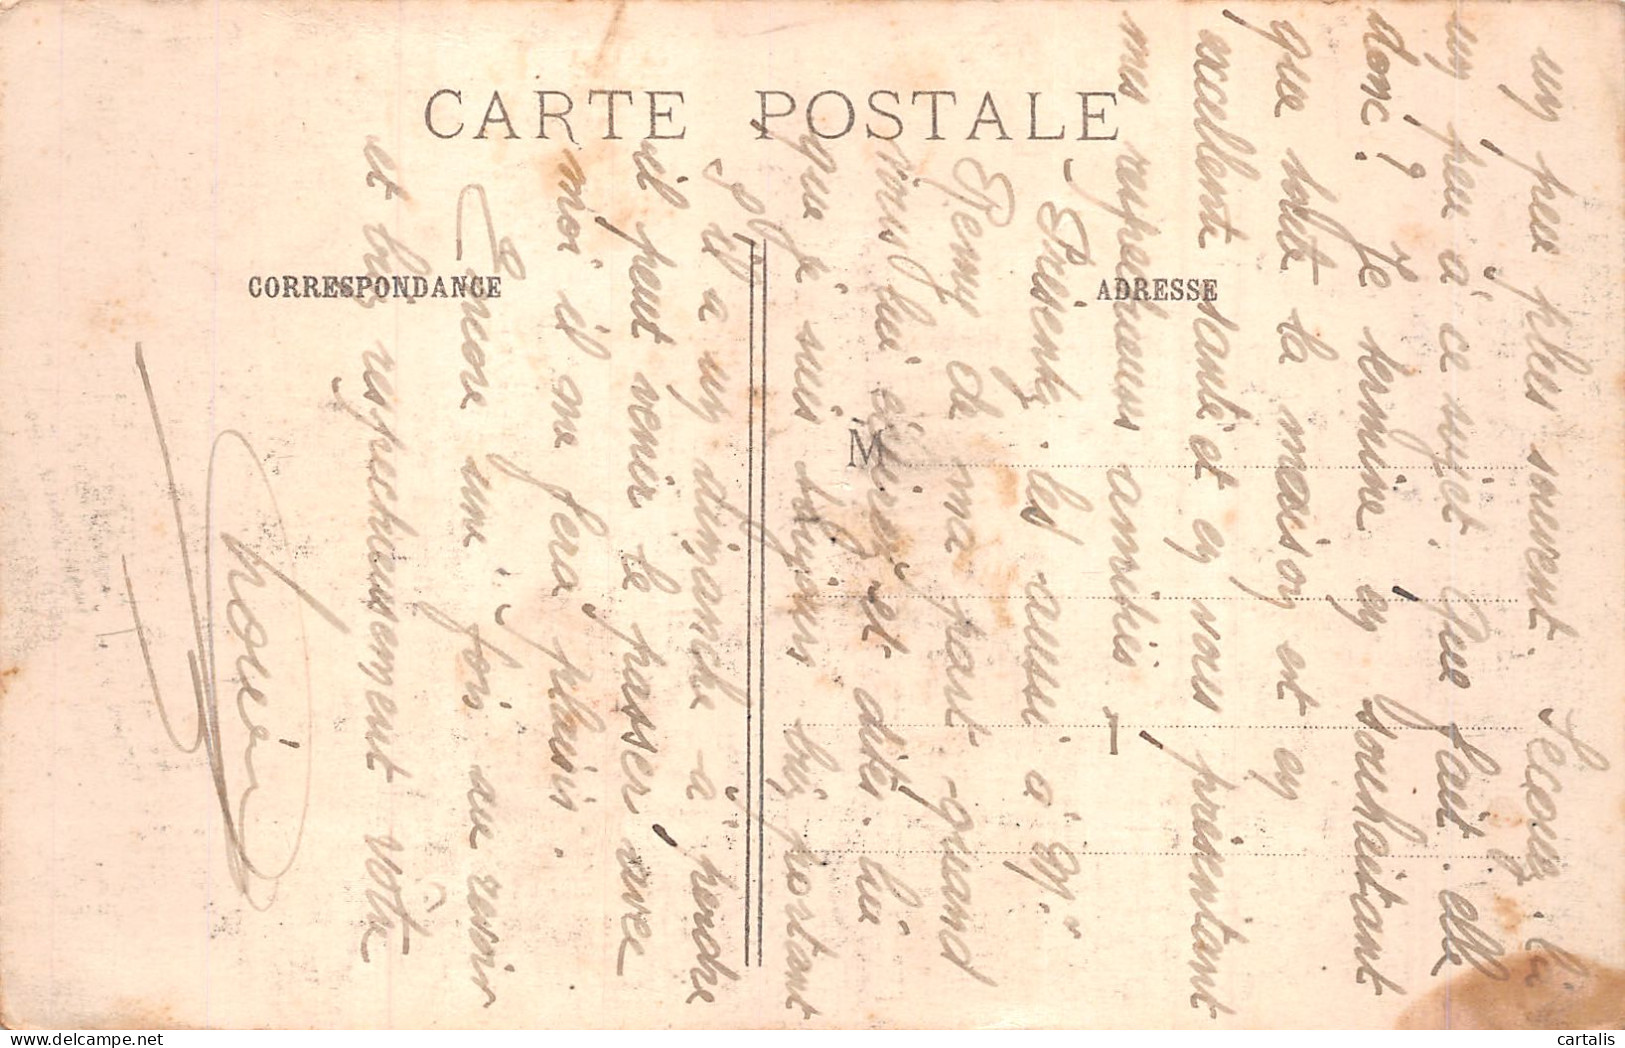 CARTE POSTALE
CORRESPONDANCE
ADRESSE
M
un peu plus souvent. Secouez-la
un peu à ce sujet. Que fait-elle
donc? Je termine en souhaitant
que toute la maison est en
excellente santé et en vous présentant
mes respectueuses amitiés.
Présentez-les aussi à Mr
Remy de ma part quand
vous lui écirez et dites-lui
que je suis toujours bien portant
S'il a un dimanche à perdre
il peut venir le passer avec
moi il me fera plaisir.
Encore une fois au revoir
et bien respectueusement vôtre
cartalis